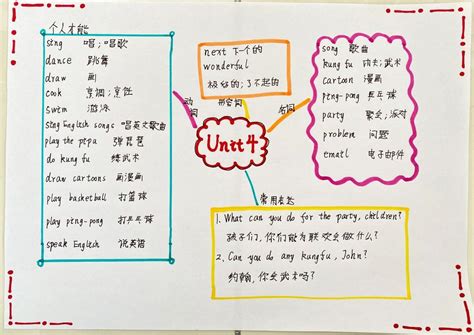 个人才能
sing 唱;唱歌
dance 跳舞
draw 画
cook 烹调;烹饪
swim 游泳
sing English songs 唱英文歌曲
play the pipa 弹琵琶
do kung fu 练武术
draw cartoons 画漫画
play basketball 打篮球
play ping-pong 打乒乓球
speak English 说英语
动词
next 下一个的
wonderful
极好的;了不起的
形容词
名词
song 歌曲
kung fu 功夫;武术
cartoon 漫画
ping-pong 乒乓球
party 聚会;派对
problem 问题
email 电子邮件
Unit 4
常用表达
1. What can you do for the party, children?
孩子们,你们能为联欢会做什么?
2. Can you do any kungfu, John?
约翰,你会武术吗?